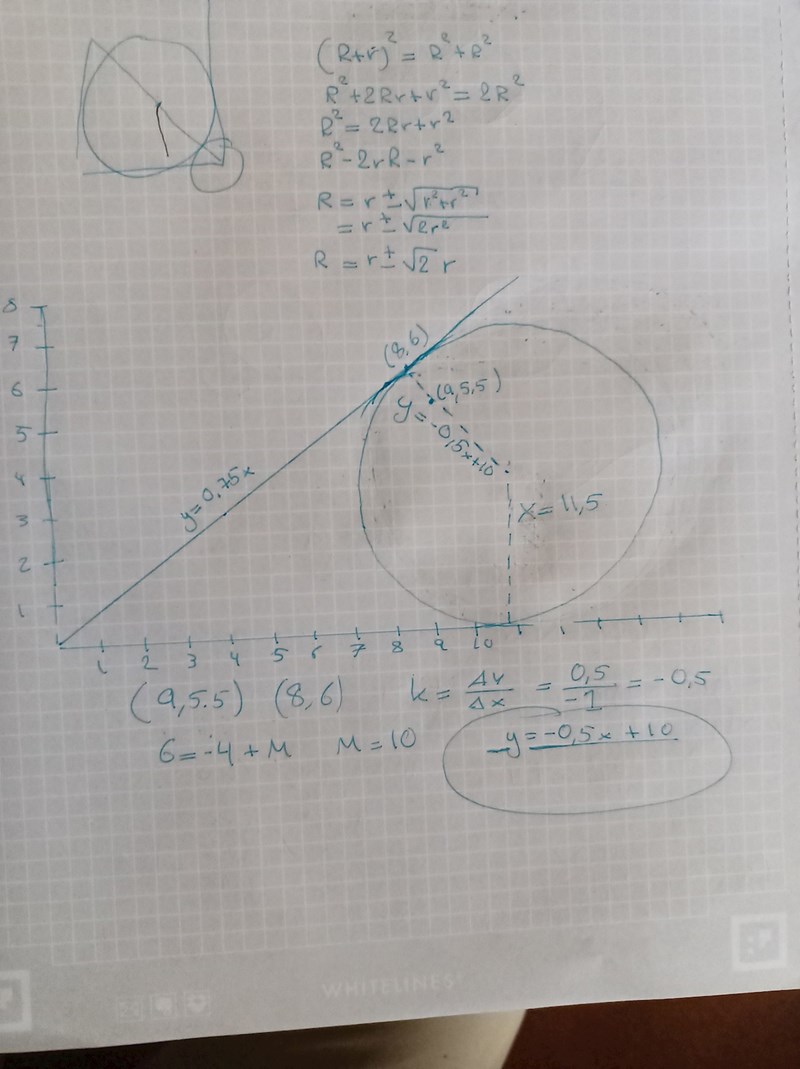 (R+r)² = R²+R²
R²+2Rr+r² = 2R²
R² = 2Rr+r²
R²-2rR-r²
R = r ± √r²+r²
= r ± √2r²
R = r ± √2 r
8
7
6
5
4
3
2
1
(8,6)
(9,5.5)
y = -0,5x+10
y=0,75x
x = 11,5
1 2 3 4 5 6 7 8 9 10
(9,5.5) (8,6) k = Δy/Δx = 0,5/-1 = -0,5
6 = -4 + M M = 10 y = -0,5x + 10
WHITELINES®